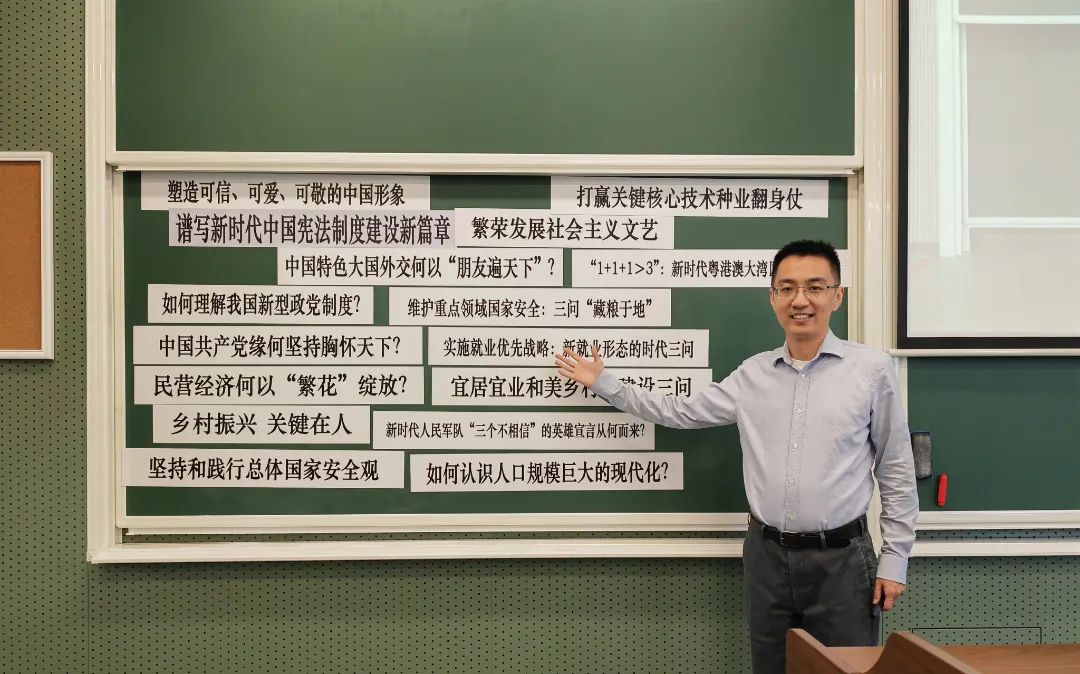 塑造可信、可爱、可敬的中国形象
打赢关键核心技术种业翻身仗
谱写新时代中国宪法制度建设新篇章
繁荣发展社会主义文艺
中国特色大国外交何以“朋友遍天下”？
“1+1+1>3”：新时代粤港澳大湾
如何理解我国新型政党制度？
维护重点领域国家安全：三问“藏粮于地”
中国共产党缘何坚持胸怀天下？
实施就业优先战略：新就业形态的时代三问
民营经济何以“繁花”绽放？
宜居宜业和美乡 建设三问
乡村振兴 关键在人
新时代人民军队“三个不相信”的英雄宣言从何而来？
坚持和践行总体国家安全观
如何认识人口规模巨大的现代化？